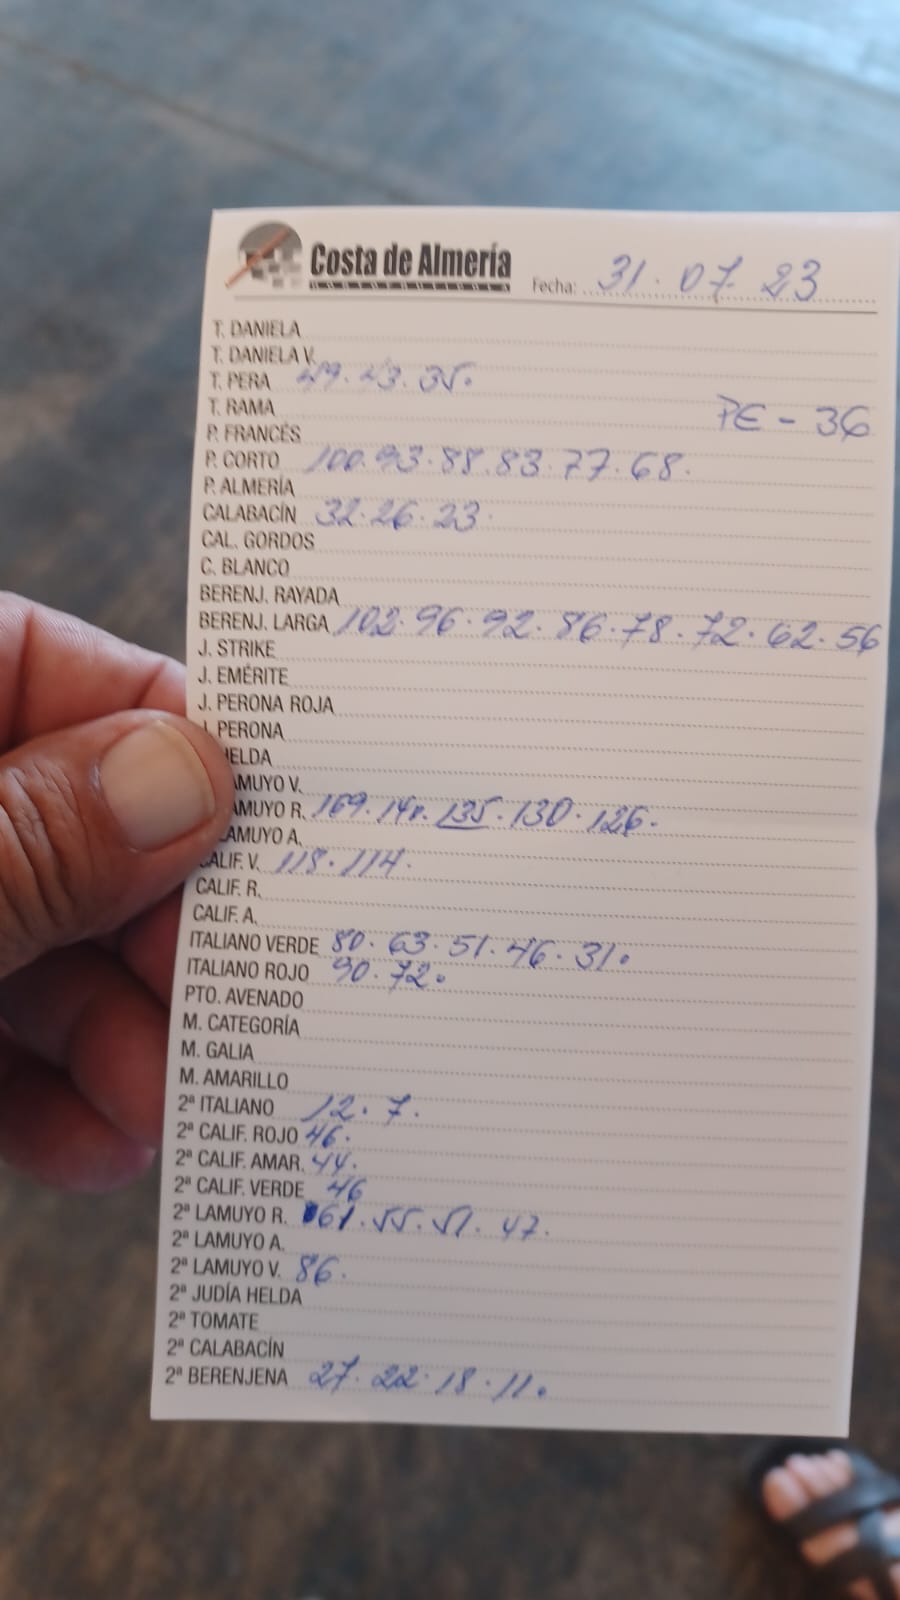 Costa de Almería
Fecha: 31. 07. 23
T. DANIELA
T. DANIELA V.
T. PERA 49. 43. 35.
T. RAMA
PE - 36
P. FRANCÉS
P. CORTO 100. 93. 88. 83. 77. 68.
P. ALMERÍA
CALABACÍN 32. 26. 23.
CAL. GORDOS
C. BLANCO
BERENJ. RAYADA
BERENJ. LARGA 102. 96. 92. 86. 78. 72. 62. 56
J. STRIKE
J. EMÉRITE
J. PERONA ROJA
J. PERONA
HELDA
LAMUYO V.
LAMUYO R. 169. 135. 130. 126.
LAMUYO A.
CALIF. V. 118. 114.
CALIF. R.
CALIF. A.
ITALIANO VERDE 80. 63. 51. 46. 31.
ITALIANO ROJO 90. 72.
PTO. AVENADO
M. CATEGORÍA
M. GALIA
M. AMARILLO
2ª ITALIANO 12. 7.
2ª CALIF. ROJO 46.
2ª CALIF. AMAR. 44.
2ª CALIF. VERDE 46
2ª LAMUYO R. 61. 55. 51. 47.
2ª LAMUYO A.
2ª LAMUYO V. 86.
2ª JUDÍA HELDA
2ª TOMATE
2ª CALABACÍN
2ª BERENJENA 27. 22. 18. 11.